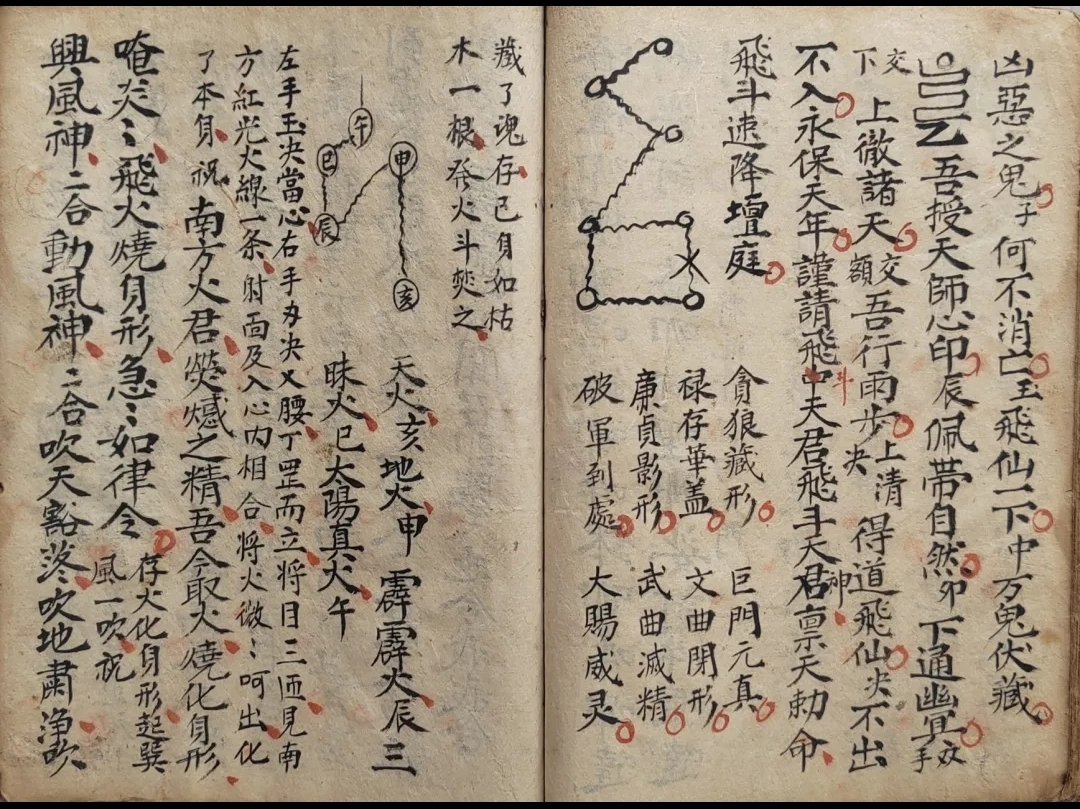 凶惡之鬼子何不消亡玉飛仙一下中万鬼伏藏
乙吾授天師心印辰佩带自然卯下通幽冥双手
交下上徹諸天交額吾行雨步决上清得道飛仙决不出
不入永保天年謹請飛斗中天君飛斗天君神禀天勅命
飛斗速降壇庭
貪狼藏形巨門元真
禄存華盖文曲閉形
廉貞影形武曲滅精
破軍到處大賜威灵
藏了魂存已身如枯
木一根發火斗焚之
午
申
巳
辰
亥
天火亥地火申霹靂火辰三
昧火巳太陽真火午
左手玉决當心右手刃决乂腰丁罡而立將目三匝見南
方紅光火線一条射面及入心内相合將火微〻呵出化
了本身祝南方火君熒惑之精吾今取火燒化身形
唵炎〻飛火燒身形急〻如律令存火化身形起巽
風一吹祝
興風神二合動風神二合吹天豁落吹地肅净吹